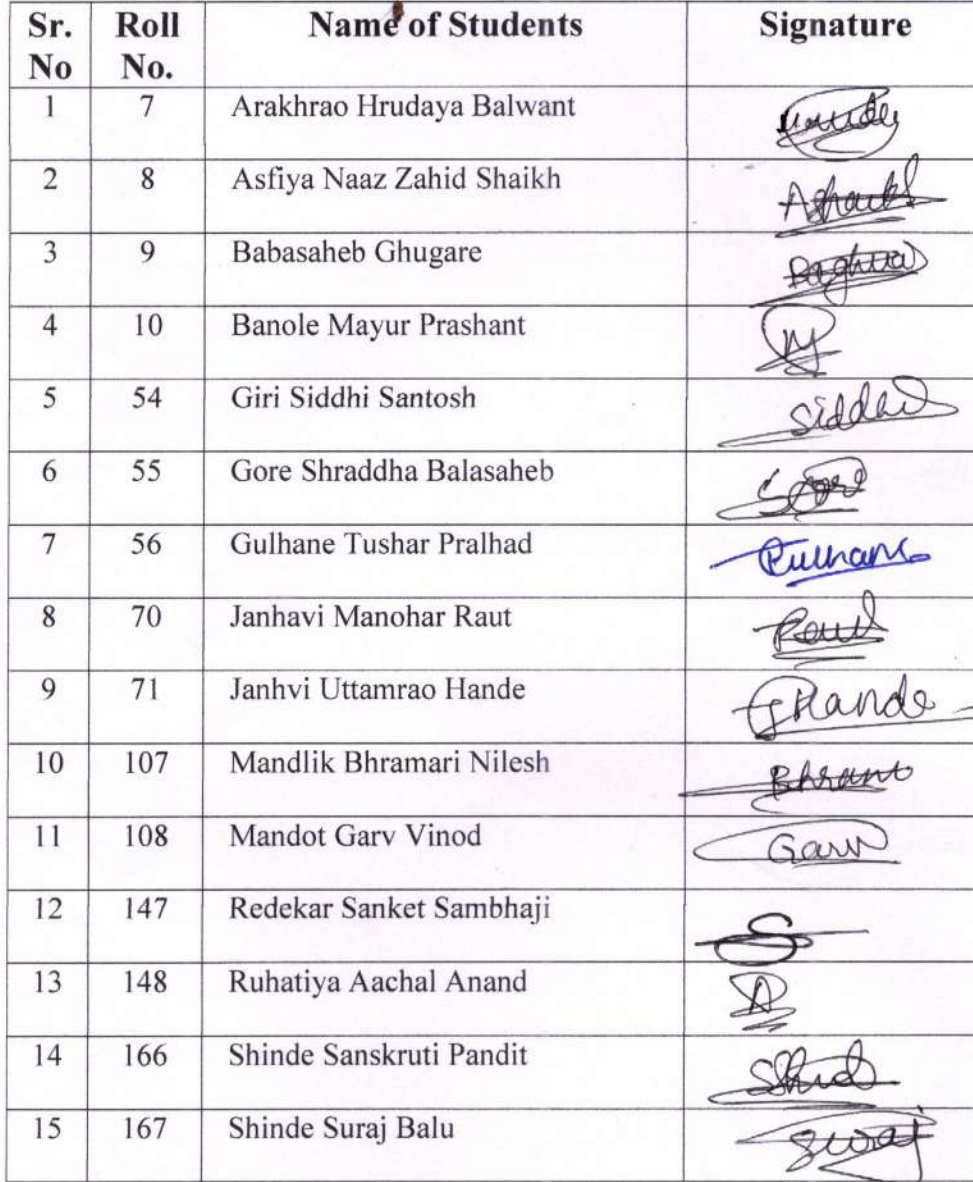 Sr. No Roll No. Name of Students Signature
1 7 Arakhrao Hrudaya Balwant
2 8 Asfiya Naaz Zahid Shaikh AShaikh
3 9 Babasaheb Ghugare
4 10 Banole Mayur Prashant M
5 54 Giri Siddhi Santosh Siddhi
6 55 Gore Shraddha Balasaheb
7 56 Gulhane Tushar Pralhad
8 70 Janhavi Manohar Raut Raut
9 71 Janhvi Uttamrao Hande JHande
10 107 Mandlik Bhramari Nilesh
11 108 Mandot Garv Vinod Garv
12 147 Redekar Sanket Sambhaji S
13 148 Ruhatiya Aachal Anand A
14 166 Shinde Sanskruti Pandit
15 167 Shinde Suraj Balu Suraj